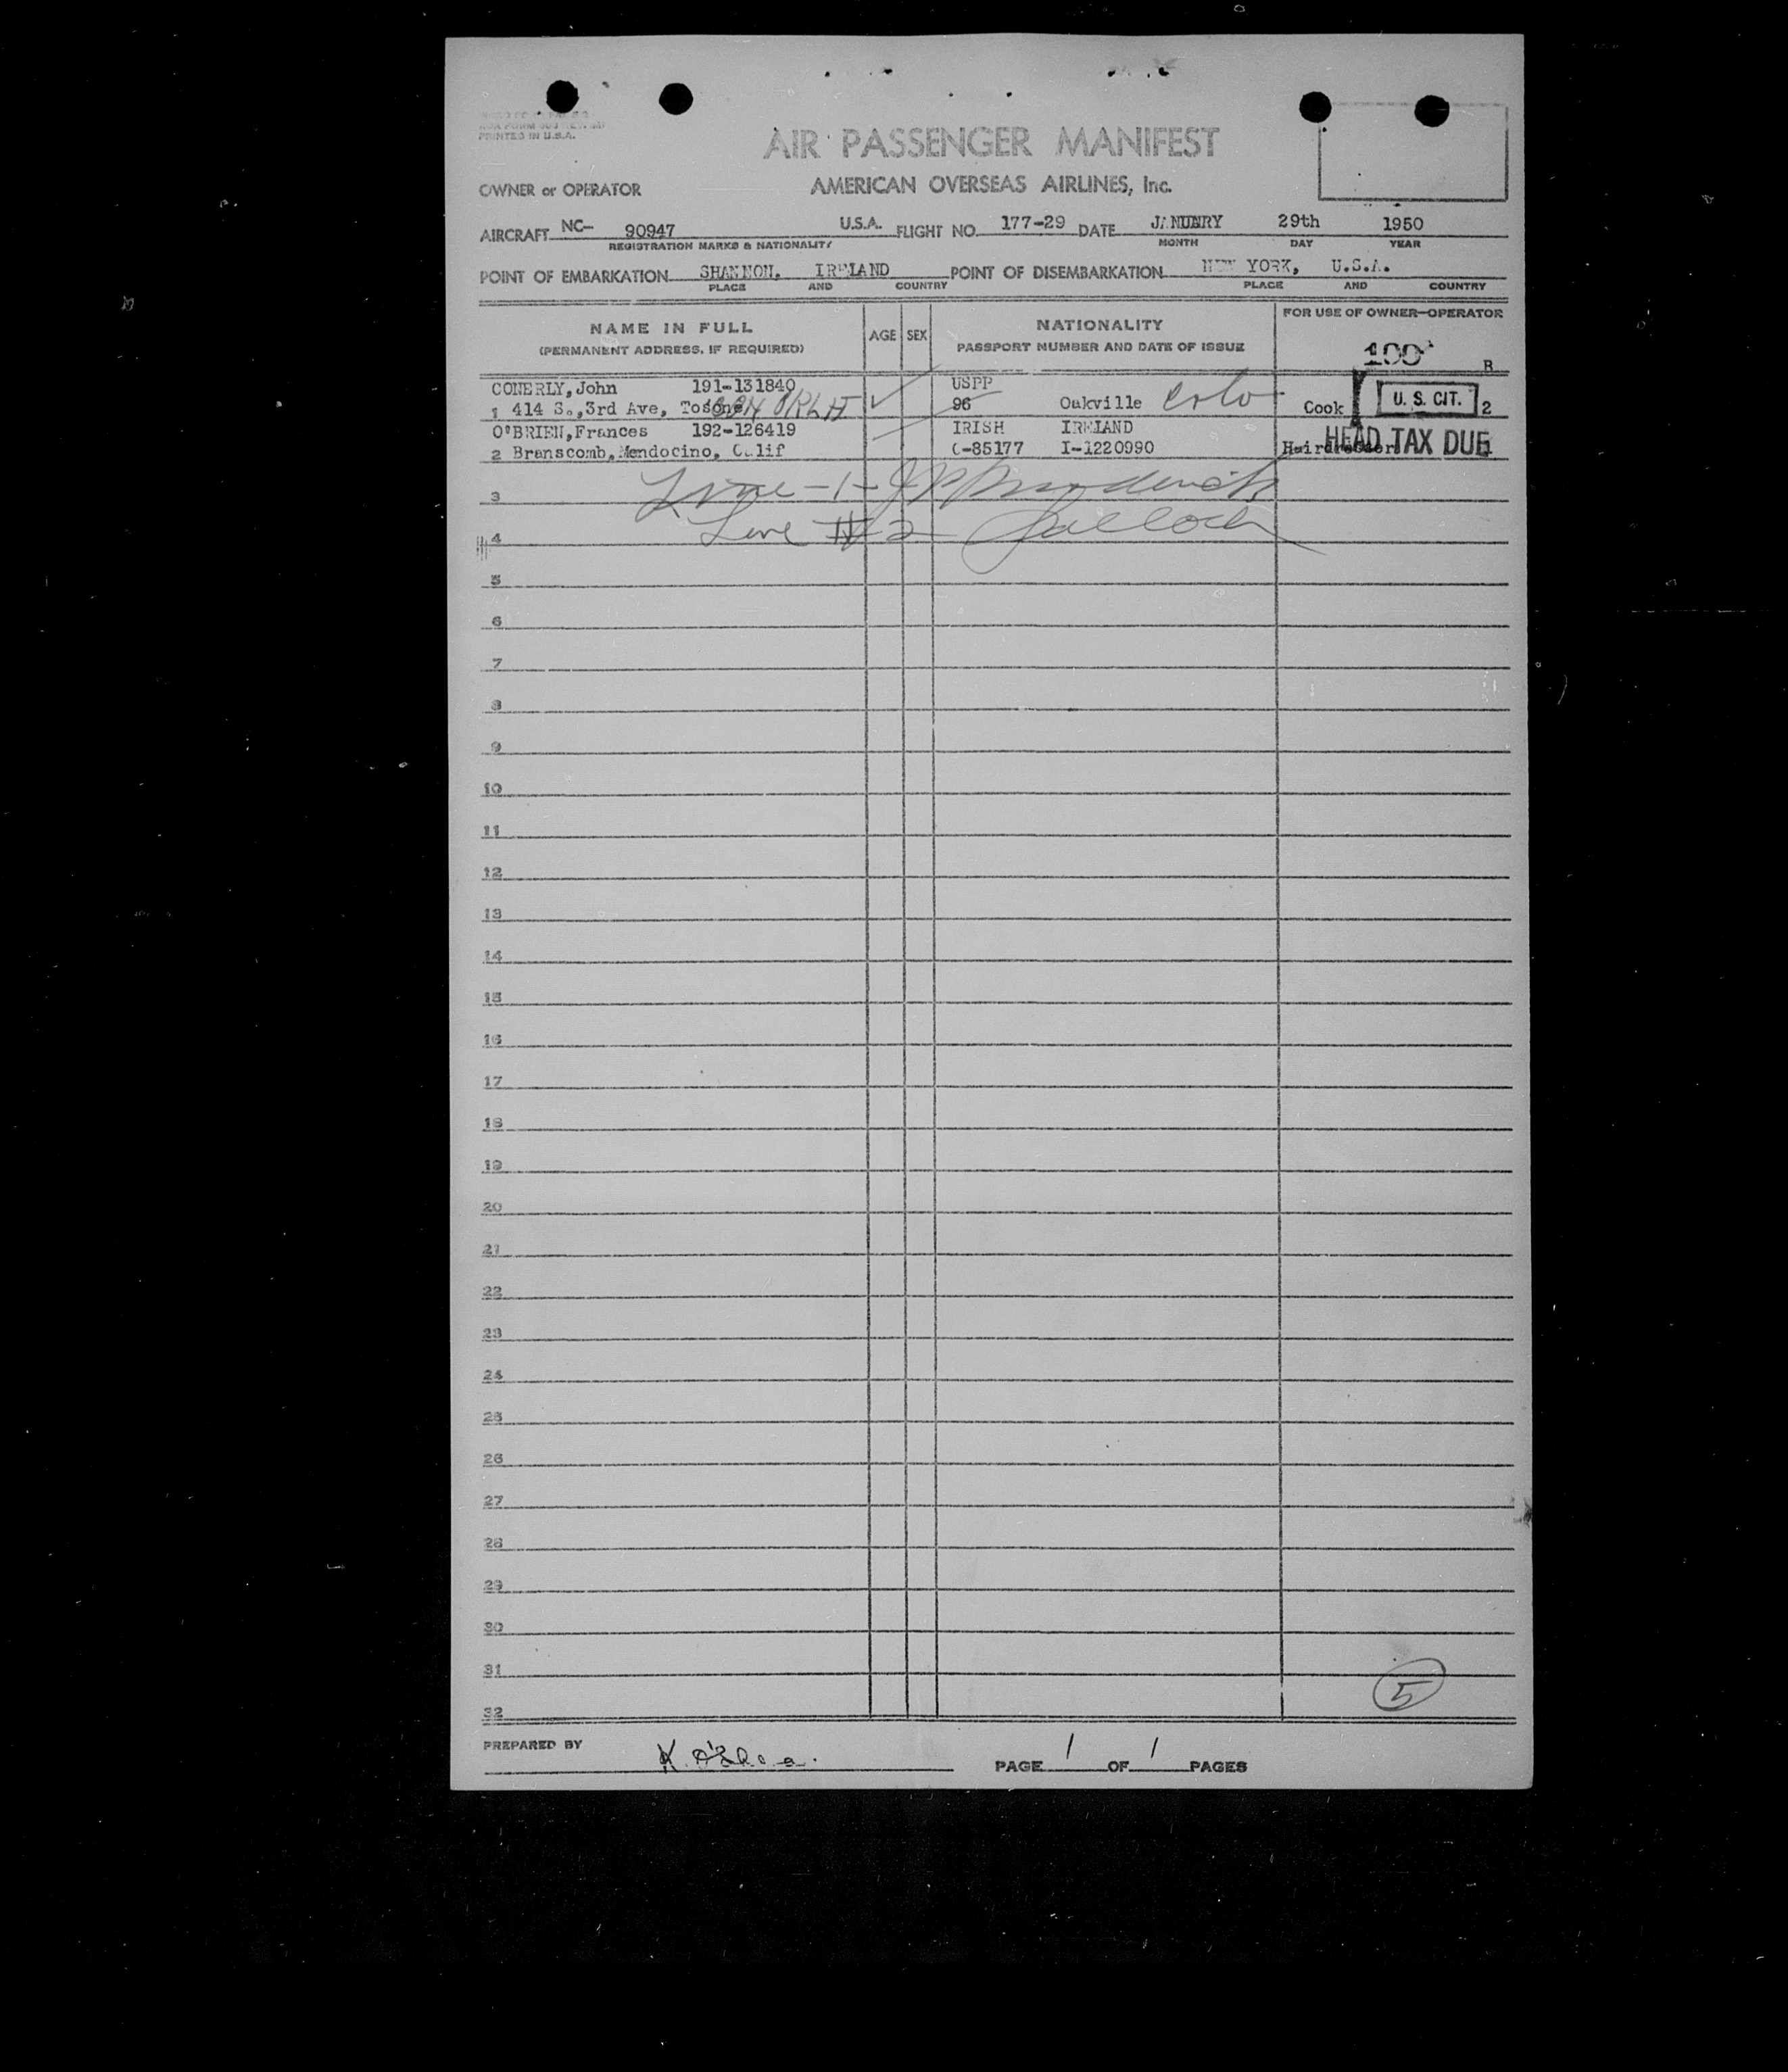 PRINTED IN U.S.A.
AIR PASSENGER MANIFEST
OWNER or OPERATOR AMERICAN OVERSEAS AIRLINES, Inc.
AIRCRAFT NC- 90947 U.S.A. FLIGHT NO. 177-29 DATE JANUARY 29th 1950
REGISTRATION MARKS & NATIONALITY MONTH DAY YEAR
POINT OF EMBARKATION SHANNON, IRELAND POINT OF DISEMBARKATION NEW YORK, U.S.A.
PLACE AND COUNTRY PLACE AND COUNTRY
NAME IN FULL
(PERMANENT ADDRESS, IF REQUIRED)
AGE SEX
NATIONALITY
PASSPORT NUMBER AND DATE OF ISSUE
FOR USE OF OWNER-OPERATOR
100 B
CONERLY, John 191-131840 USPP
1 414 So., 3rd Ave, 96 Oakville Cook U. S. CIT. 2
O'BRIEN, Frances 192-126419 IRISH IRELAND
2 Branscomb, Mendocino, Calif C-85177 I-1220990 Hairdresser HEAD TAX DUE
Line -1-
3
Line #2
4
5
6
7
8
9
10
11
12
13
14
15
16
17
18
19
20
21
22
23
24
25
26
27
28
29
30
31
5
32
PREPARED BY K. O'Shea. PAGE 1 OF 1 PAGES